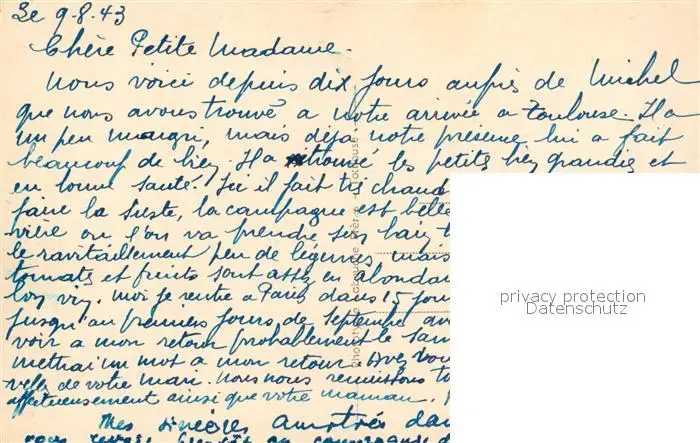 Le 9-8-43
Chère Petite Madame.
Nous voici depuis dix jours auprès de Michel
que nous avons trouvé a notre arrivée a Toulouse. Il a
un peu maigri, mais deja notre présence lui a fait
beaucoup de bien. Il a retrouvé les petits bien grandis et
en bonne santé. Ici il fait très chaud
faire la sieste, la campagne est belle
ou l'on va prendre son bain
le ravitaillement peu de légumes mais
tomates et fruits sont assez en abondan
bon vin. Moi je rentre a Paris dans 15 jou
jusqu'au premiers jours de Septembre
voir a mon retour probablement le Sam
mettrai un mot a mon retour. Avez vou
velles de votre mari. Nous nous reunissons
affectueusement ainsi que votre maman.
Mes sincères amitiés dan
privacy protection
Datenschutz